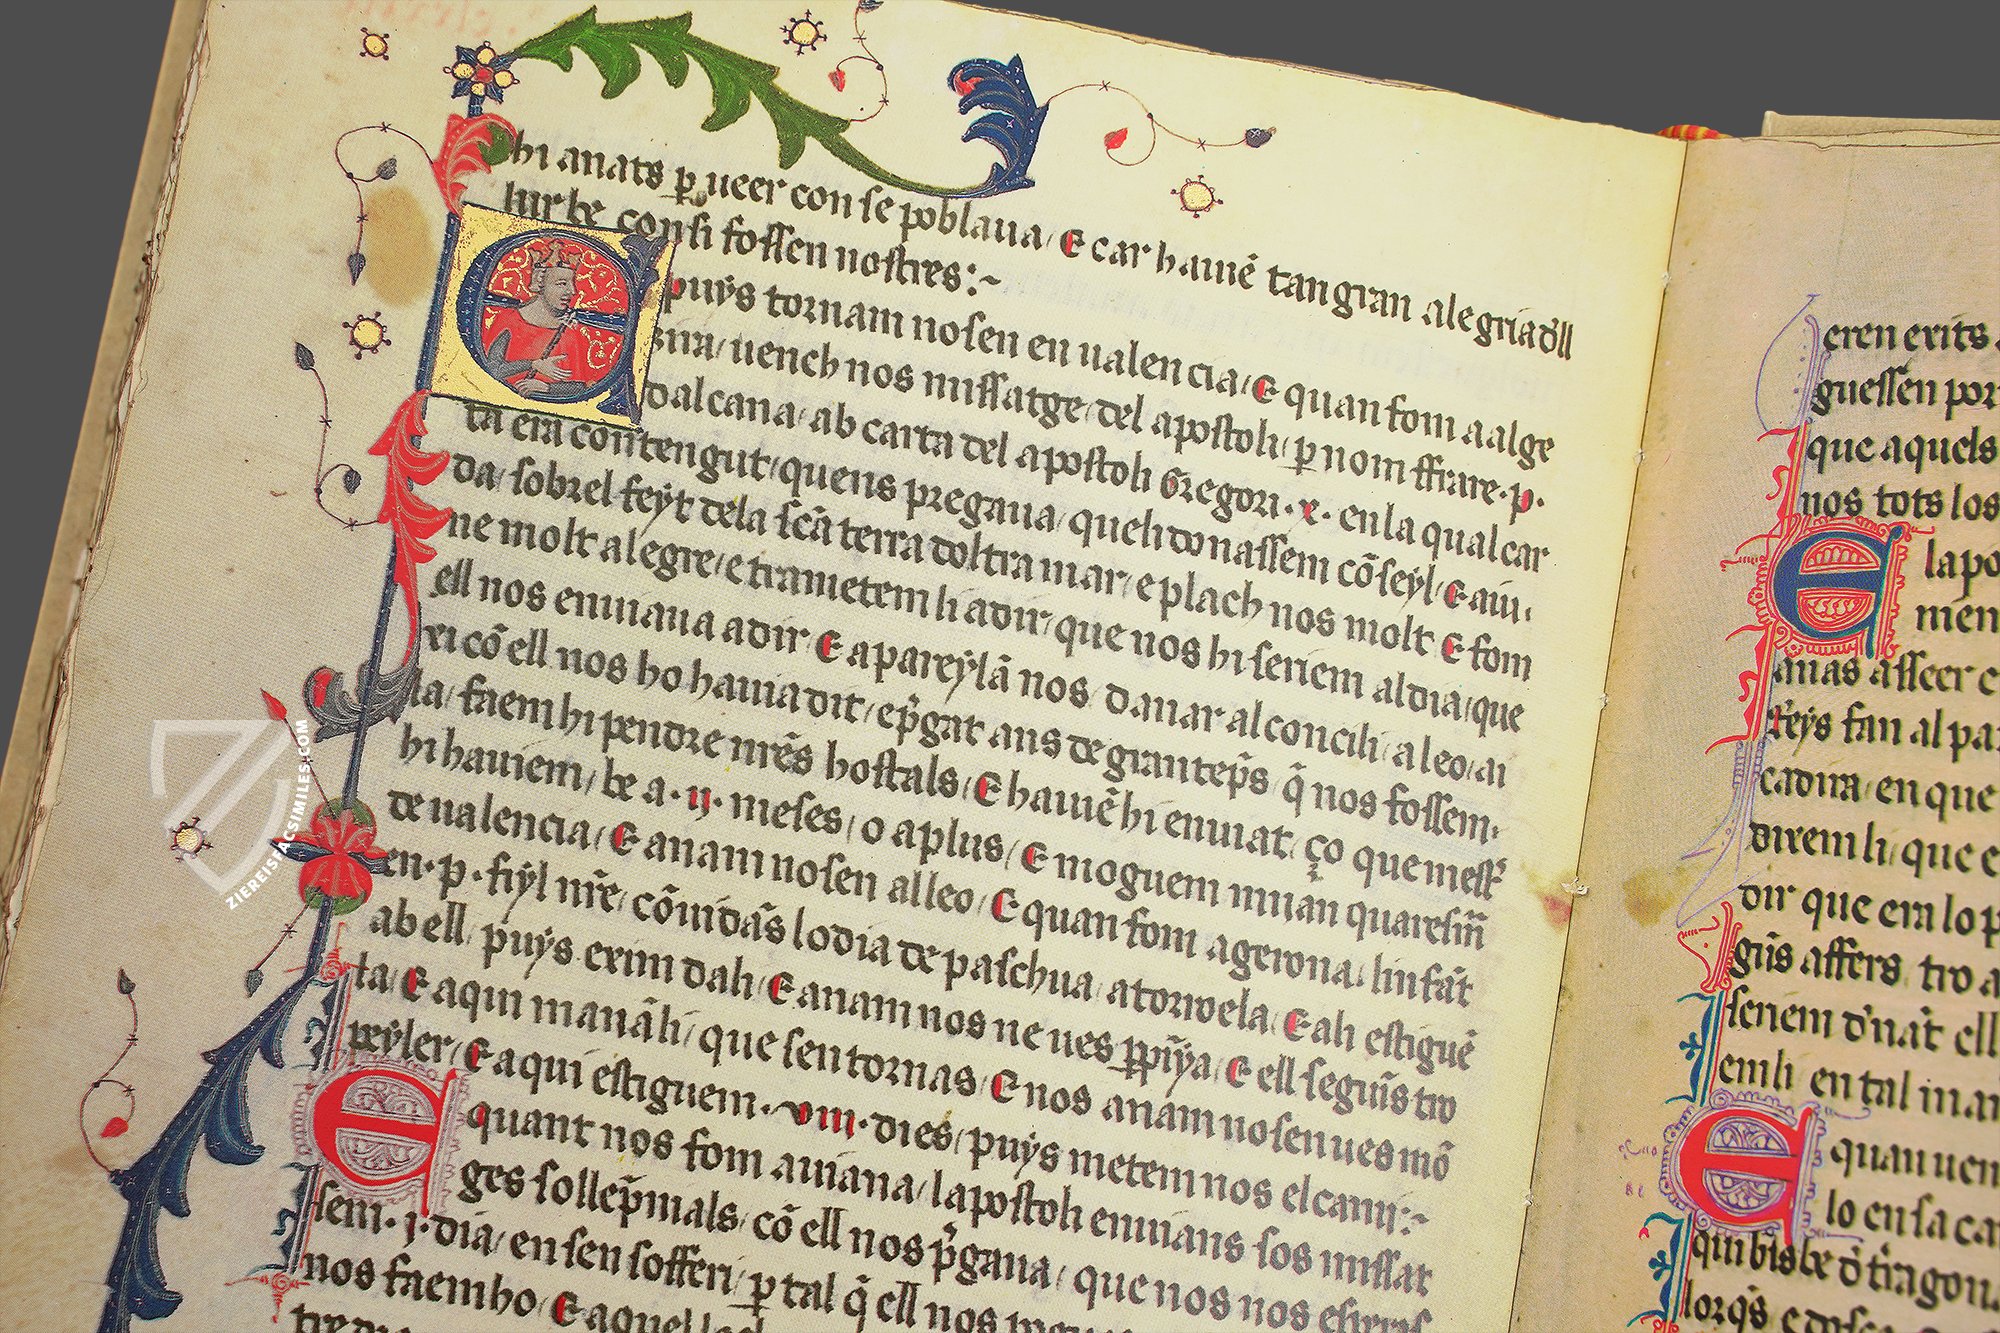 hi anats p ueer con se poblaua / E car hauiē tan gran alegria dll
lur be con si fossen nostres :~
E puys tornam nosen en ualencia / E quan fom a alge
zira / uench nos missatge / del apostoli / p nom ffrare · p ·
dalcana / ab carta del apostoli Gregori · x · en la qual car
ta era contengut / quens pregaua / queli donassem cōseyl / E aiu
da / sobrel feyt dela scā terra doltra mar / e plach nos molt E fom
ne molt alegre / e trametem li a dir / que nos hi seriem al dia / que
ell nos enuiaua a dir E apareylā nos danar al concili / a leo / ai
xi cō ell nos ho hauia dit / e pgat ans de gran teps / q̄ nos fossem
la / faem hi pendre nres hostals / E hauiē hi enuiat / ço que mest
hi hauiem / be a · ij · meses / o a plus / E moguem miian quaresm
de ualencia / E anam nosen al leo / E quan fom a gerona / linfāt
en · p · fiyl nre / cōuidās lo dia de paschua / a torroela / E ali estiguē
ab ell / puys exim dali / E anam nos ne ues ppiya / E ell seguis tro
la / E aqui manā li / que sen tornas / E nos anam nosen ues mō
peyler / E aqui estiguem · viii · dies / puys metem nos el cami :~
E quant nos fom a uiana / lapostoli enuians sos missat
ges sollepmals / cō ell nos pgaua / que nos nos
sem · j · dia / en sen sofferi / p tal q̄ ell nos
nos faem ho / E
eren exits
guessen por
que aquels
nos tots los
E lapo
men
anas asseer
reys fan al pa
cadira / en que
dixem li / que
dir que era lo p
gus affers / tro a
seriem
em li en tal
E quan uen
lo en sa
ZIEREIS FACSIMILES.COM